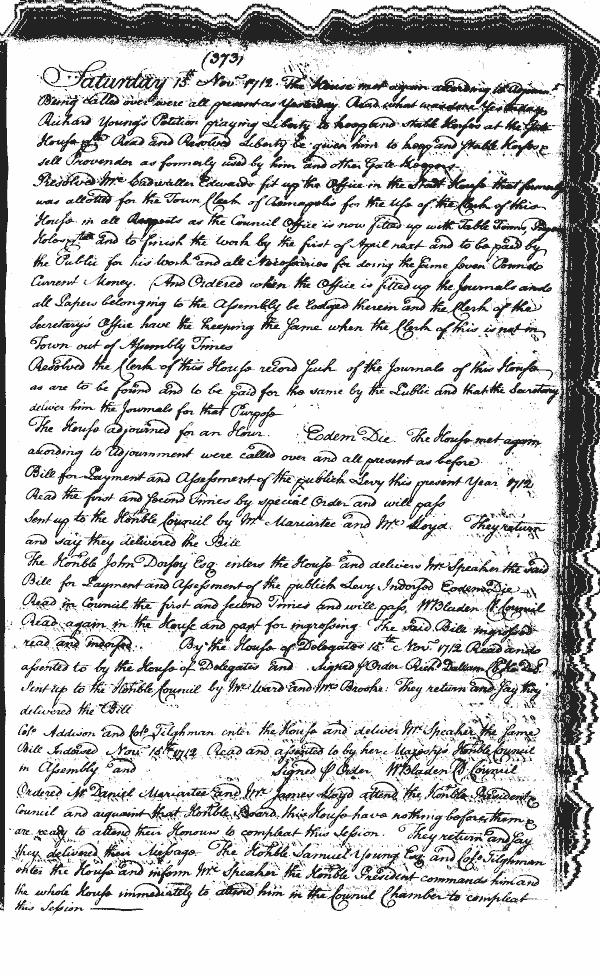 (373)
Saturday 15th Novr 1712. The House met again according to Adjournt
Being called over were all present as Yesterday. Read what was done Yesterday
Richard Young's Petition praying Liberty to keep and Stable Horses at the Gate
House Read and Resolved Liberty be given him to keep and Stable Horses &
sell Provender as formerly used by him and other Gate Keepers
Resolved Mr Cadwallder Edwards fit up the Office in the Stadt House that formerly
was allotted for the Town Clerk of Annapolis for the Use of the Clerk of this
House in all Respects as the Council Office is now fitted up with Table
and to finish the Work by the first of April next and to be paid by
the Public for his Work and all Necessaries for doing the same Seven Pounds
Current Money. And Ordered when the Office is fitted up the Journals and
all Papers belonging to the Assembly be lodged therein and the Clerk of the
Secretary's Office have the keeping the same when the Clerk of this is not in
Town out of Assembly Times
Resolved the Clerk of this House record such of the Journals of this House
as are to be found and to be paid for the same by the Public and that the Secretary
deliver him the Journals for that Purpose
The House adjourned for an Hour. Eodem Die The House met again
according to Adjournment were called over and all present as before
Bill for Payment and Assessment of the publick Levy this present Year 1712
Read the first and second Times by special Order and will pass
Sent up to the Honble Council by Mr Mariartee and Mr Lloyd. They return
and say they delivered the Bill
The Honble John Dorsey Esq enters the House and delivers Mr Speaker the said
Bill for Payment and Assessment of the publick Levy Indorsed Eodem Die
Read in Council the first and second Times and will pass, W Bladen Cl Council
Read again in the House and past for ingrossing The said Bill ingrossed
read and By the House of Delegates 15th Novr 1712 Read and
assented to by the House of Delegates and Signed p Order Richd Dallam Cl Ho Del
Sent up to the Honble Council by Mr Ward and Mr Brooke. They return and say they
delivered the Bill
Colo Addison and Colo Tilghman enter the House and deliver Mr Speaker the same
Bill Indorsed Novr 15th 1712 Read and assented to by her Majestys Honble Council
in Assembly and Signed p Order W Bladen Cl Council
Ordered Mr Daniel Mariartee and Mr James Lloyd attend the Honble President &
Council and acquaint that Honble Board this House have nothing before them &
are ready to attend their Honours to compleat this Session. They return and say
they delivered their Message The Honble Samuel Young Esq and Colo Tilghman
enter the House and inform Mr Speaker the Honble President commands him and
the whole House immediately to attend him in the Council Chamber to compleat
this Session